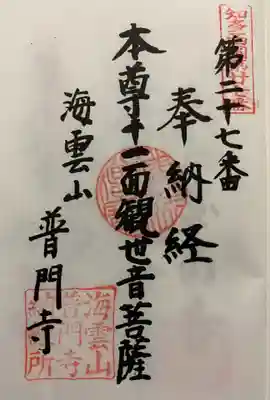 第二十七番
奉納経
本尊十一面観世音菩薩
海雲山
普門寺
海雲山
普門寺
納所